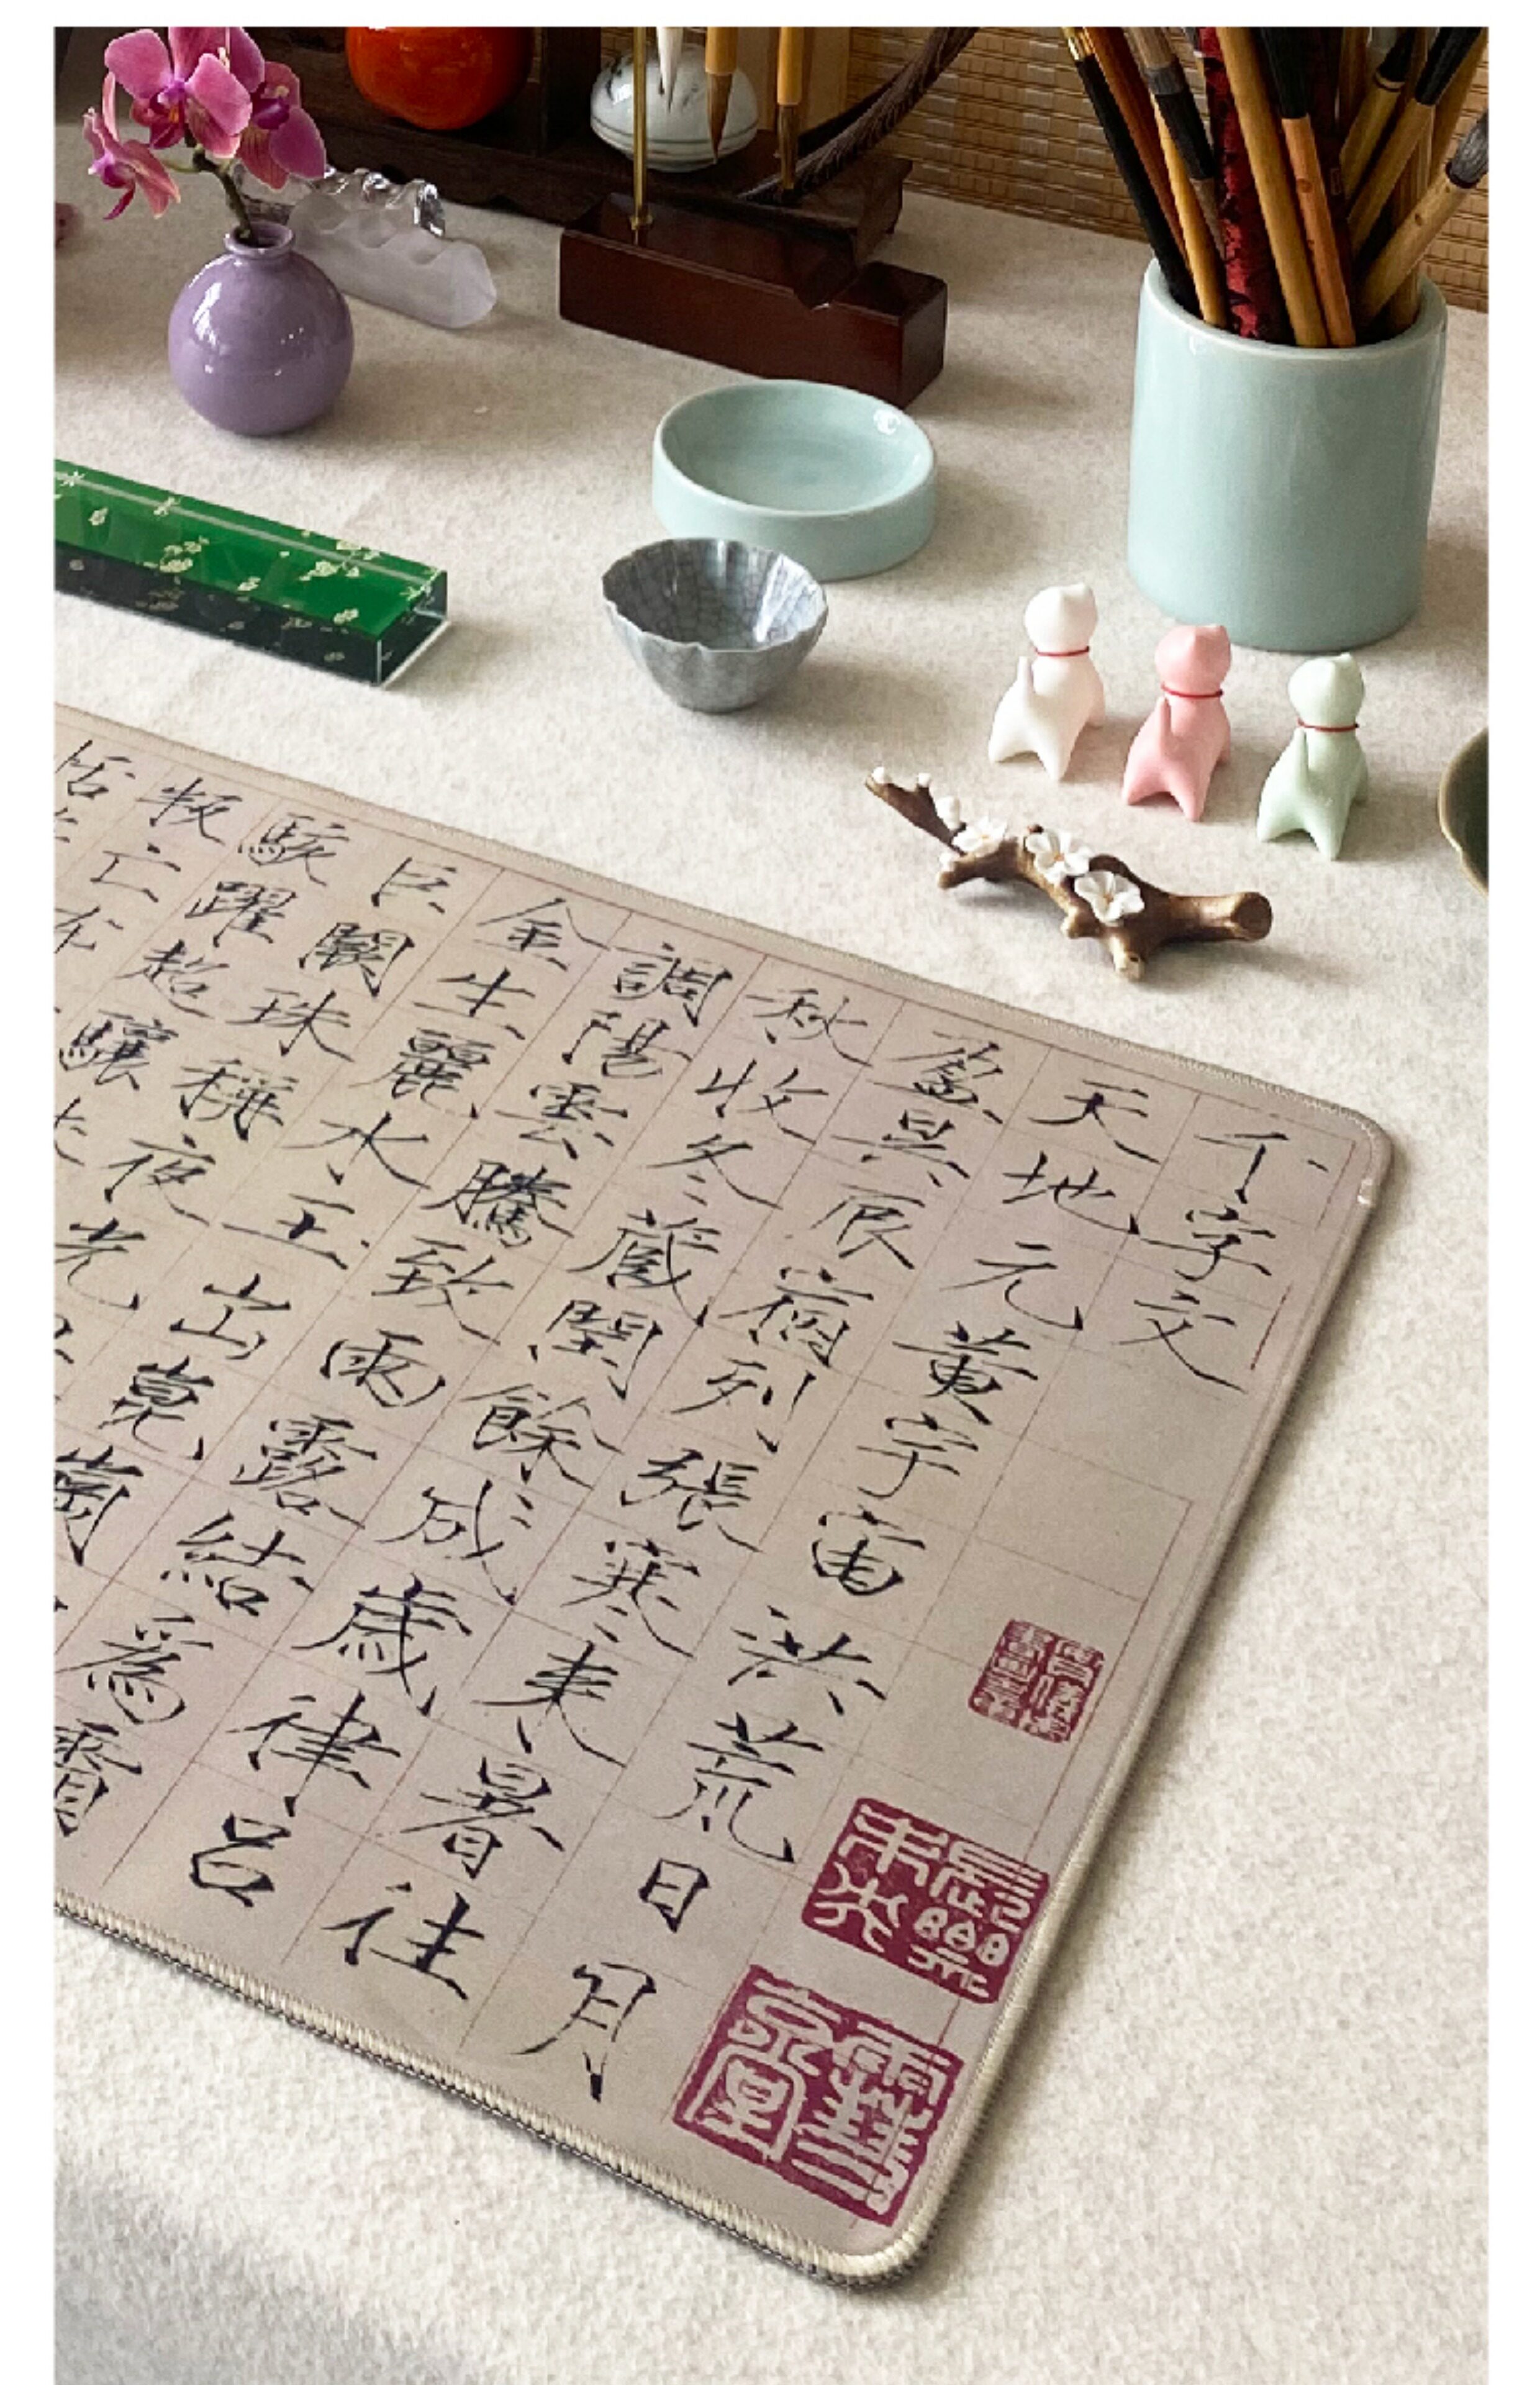 千字文
天地元黃宇宙洪荒日月
盈昃辰宿列張寒来暑往
秋收冬藏閏餘成歲律呂
調陽雲騰致雨露結爲霜
金生麗水玉出崑崗
巨闕珠稱夜光
駭躍超驤
叛亡布
恬